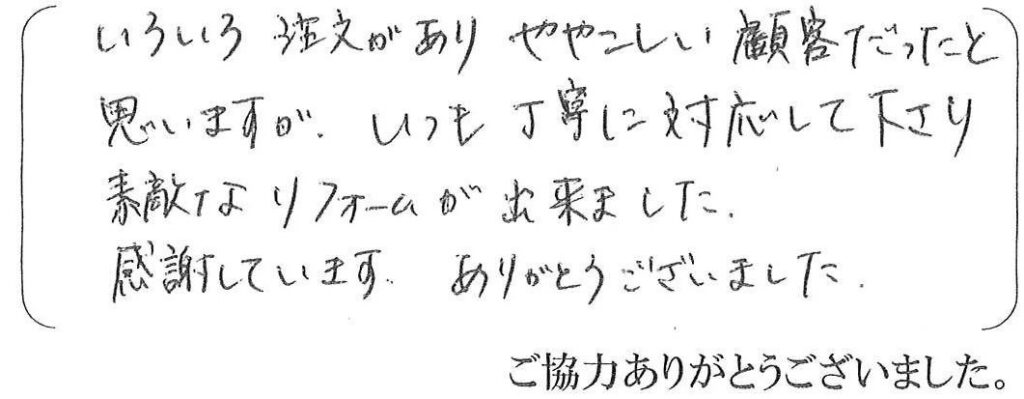 いろいろ 注文があり ややこしい 顧客だったと
思いますが、いつも 丁寧に 対応して下さり
素敵なリフォームが 出来ました.
感謝しています. ありがとうございました.
ご協力ありがとうございました。